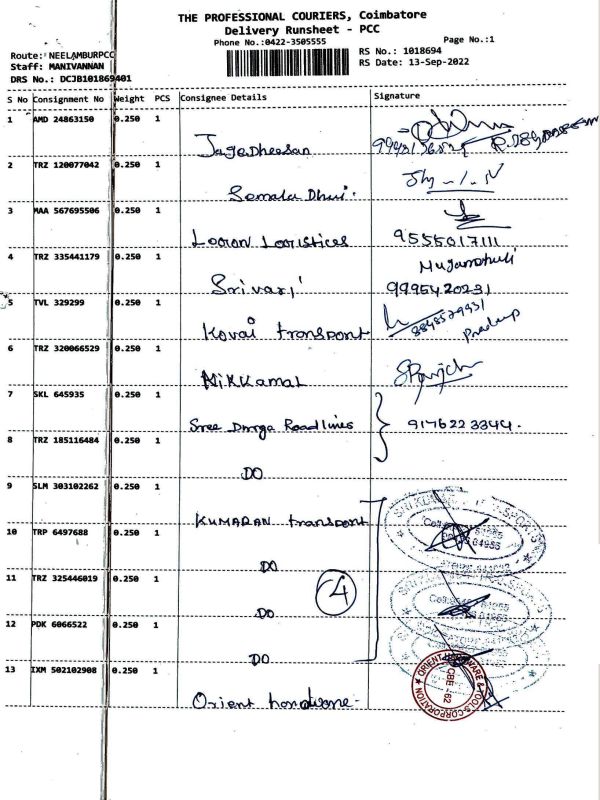 THE PROFESSIONAL COURIERS, Coimbatore
Delivery Runsheet - PCC
Phone No.:0422-3505555
Page No.:1
Route: NEELAMBURPCC
RS No.: 1018694
Staff: MANIVANNAN
RS Date: 13-Sep-2022
DRS No.: DCJB101869401
S No Consignment No Weight PCS Consignee Details Signature
1 AMD 24863150 0.250 1
Jagedheesan
2 TRZ 120077042 0.250 1
3 MAA 567695506 0.250 1
Logon Logistices 9555017111
4 TRZ 335441179 0.250 1
Srivari 9995420231
5 TVL 329299 0.250 1
Kovai transport Pradeep
6 TRZ 320066529 0.250 1
Nikkamal
7 SKL 645935 0.250 1
Sree Durga Roadlines 9176223344.
8 TRZ 185116484 0.250 1
DO
9 SLM 303102262 0.250 1
KUMARAN transport
10 TRP 6497688 0.250 1
DO
11 TRZ 325446019 0.250 1
4
DO
12 PDK 6066522 0.250 1
DO
13 IXM 502102908 0.250 1
Orient hardware-
ORIENT HARDWARE & TOOLS CORPORATION
CBE - 62